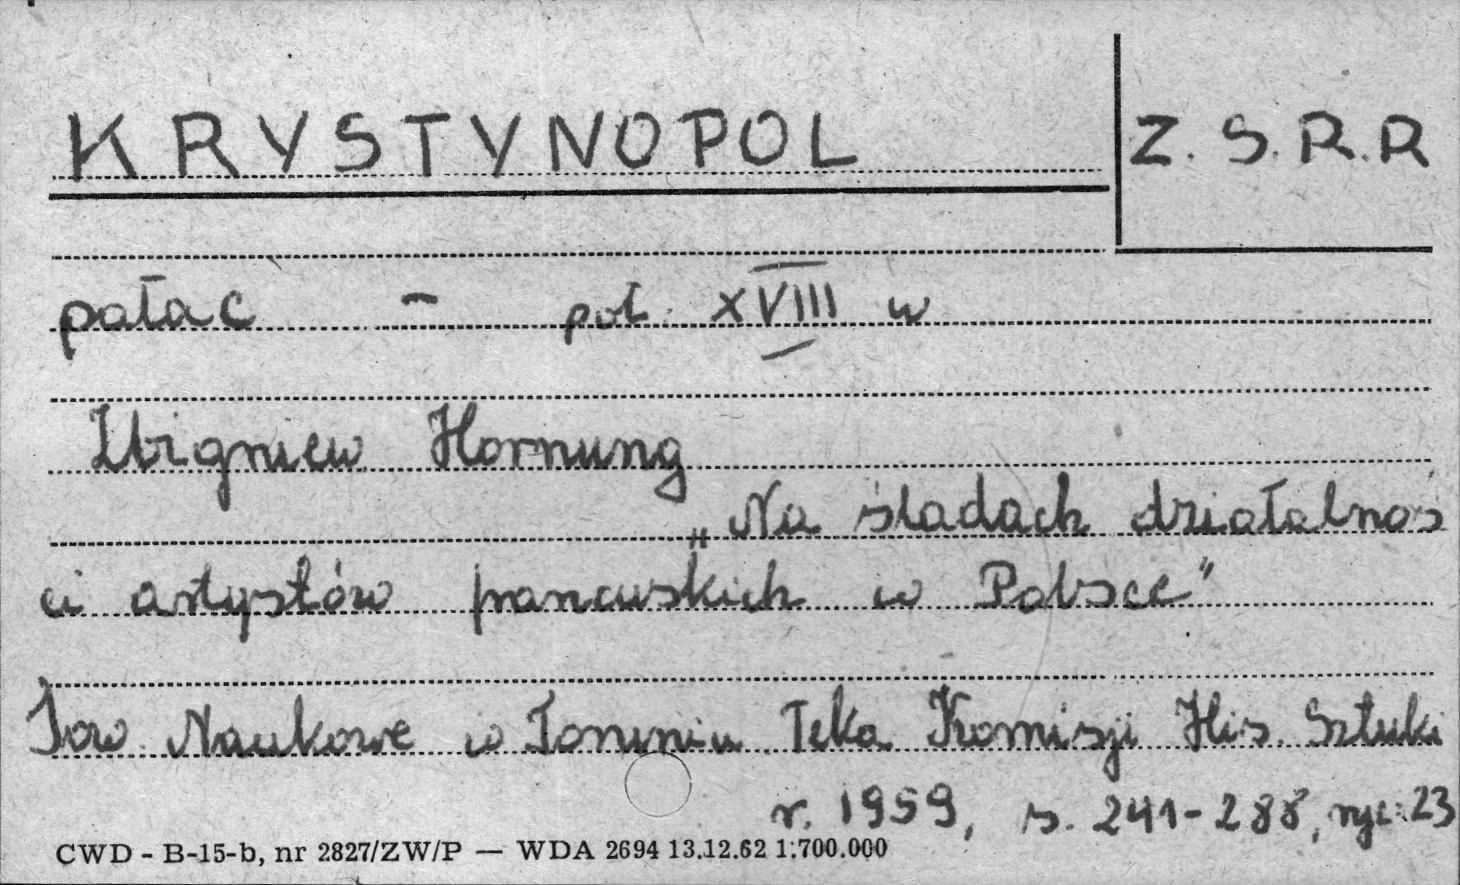 KRYSTYNOPOL
Z.S.R.R
pałac - poł. XVIII w
Zbigniew Hornung
„Na śladach działalnoś
ci artystów francuskich w Polsce"
Tow. Naukowe w Toruniu Teka Komisji His. Sztuki
r. 1959, s. 241-288, ryc: 23
CWD - B-15-b, nr 2827/ZW/P — WDA 2694 13.12.62 1.700.000